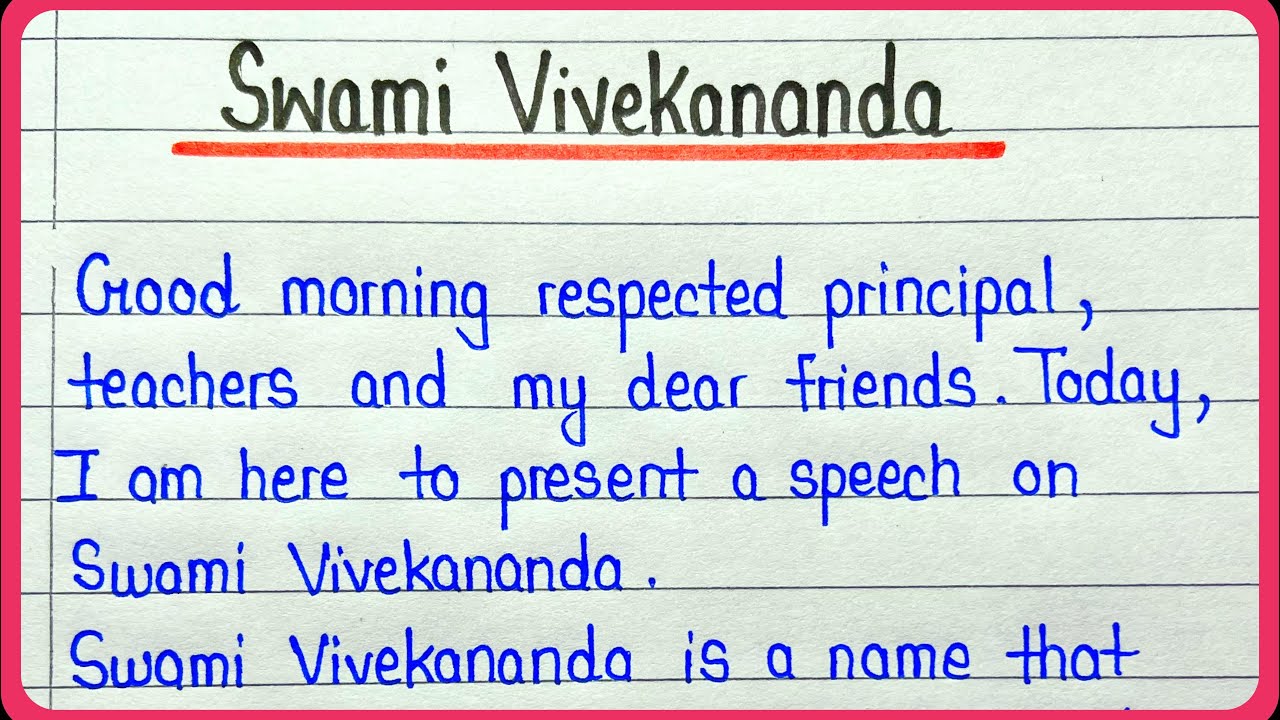 Swami Vivekananda
Good morning respected principal,
teachers and my dear friends. Today,
I am here to present a speech on
Swami Vivekananda.
Swami Vivekananda is a name that